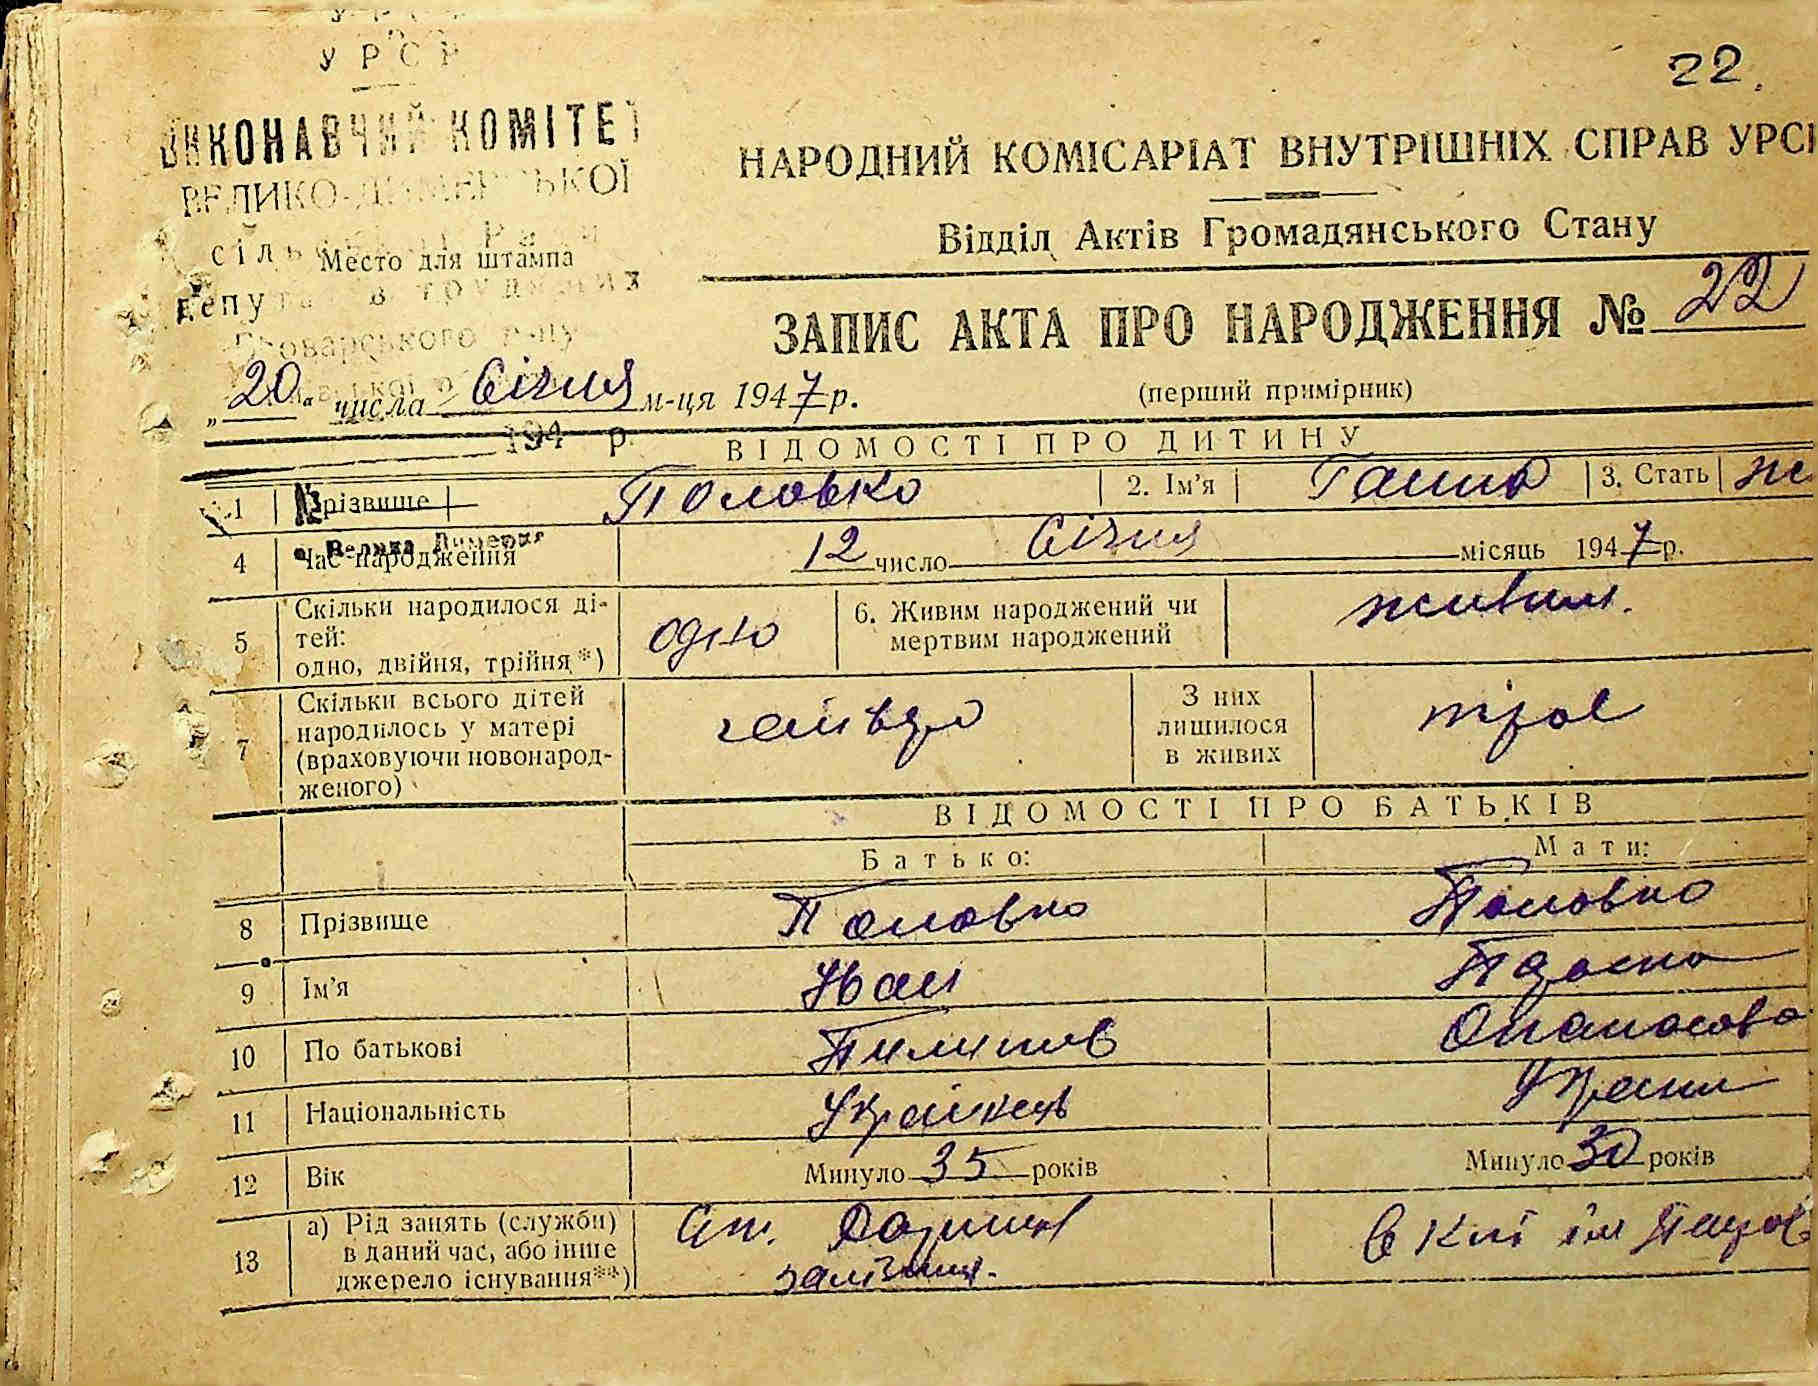 УРСР
22.
ВИКОНАВЧИЙ КОМІТЕТ
ВЕЛИКО-ДИМЕРСЬКОЇ
сільської Ради
Место для штампа
депутатів трудящих
Броварського р-ну
НАРОДНИЙ КОМІСАРІАТ ВНУТРІШНІХ СПРАВ УРСР
Відділ Актів Громадянського Стану
ЗАПИС АКТА ПРО НАРОДЖЕННЯ № 22
„20" числа Січня м-ця 1947 р.
(перший примірник)
194 р.
ВІДОМОСТІ ПРО ДИТИНУ
1 Прізвище Половко 2. Ім'я Ганна 3. Стать ж
с. Велика Димерка
4 Час народження 12 число Січня місяць 1947 р.
5 Скільки народилося ді-
тей:
одно, двійня, трійня*)
одно
6. Живим народжений чи
мертвим народжений
живим.
7 Скільки всього дітей
народилось у матері
(враховуючи новонарод-
женого)
З них
лишилося
в живих
троє
ВІДОМОСТІ ПРО БАТЬКІВ
Батько: Мати:
8 Прізвище Половко Половко
9 Ім'я Іван
10 По батькові Пилипів Опанасова
11 Національність Українець Україн
12 Вік Минуло 35 років Минуло 30 років
13 а) Рід занять (служби)
в даний час, або інше
джерело існування**)
ст. Дарниця
залізниц.
в клг ім